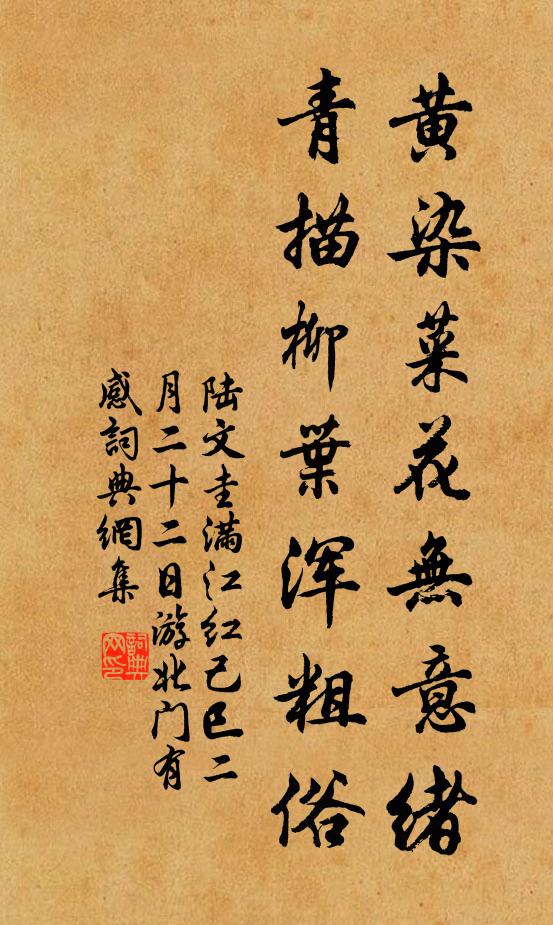 黄染菜花無意緒
青描柳葉浑粗俗
陆文圭满江红己巳二
月二十二日游北门有
感詞典網集
詞典网印